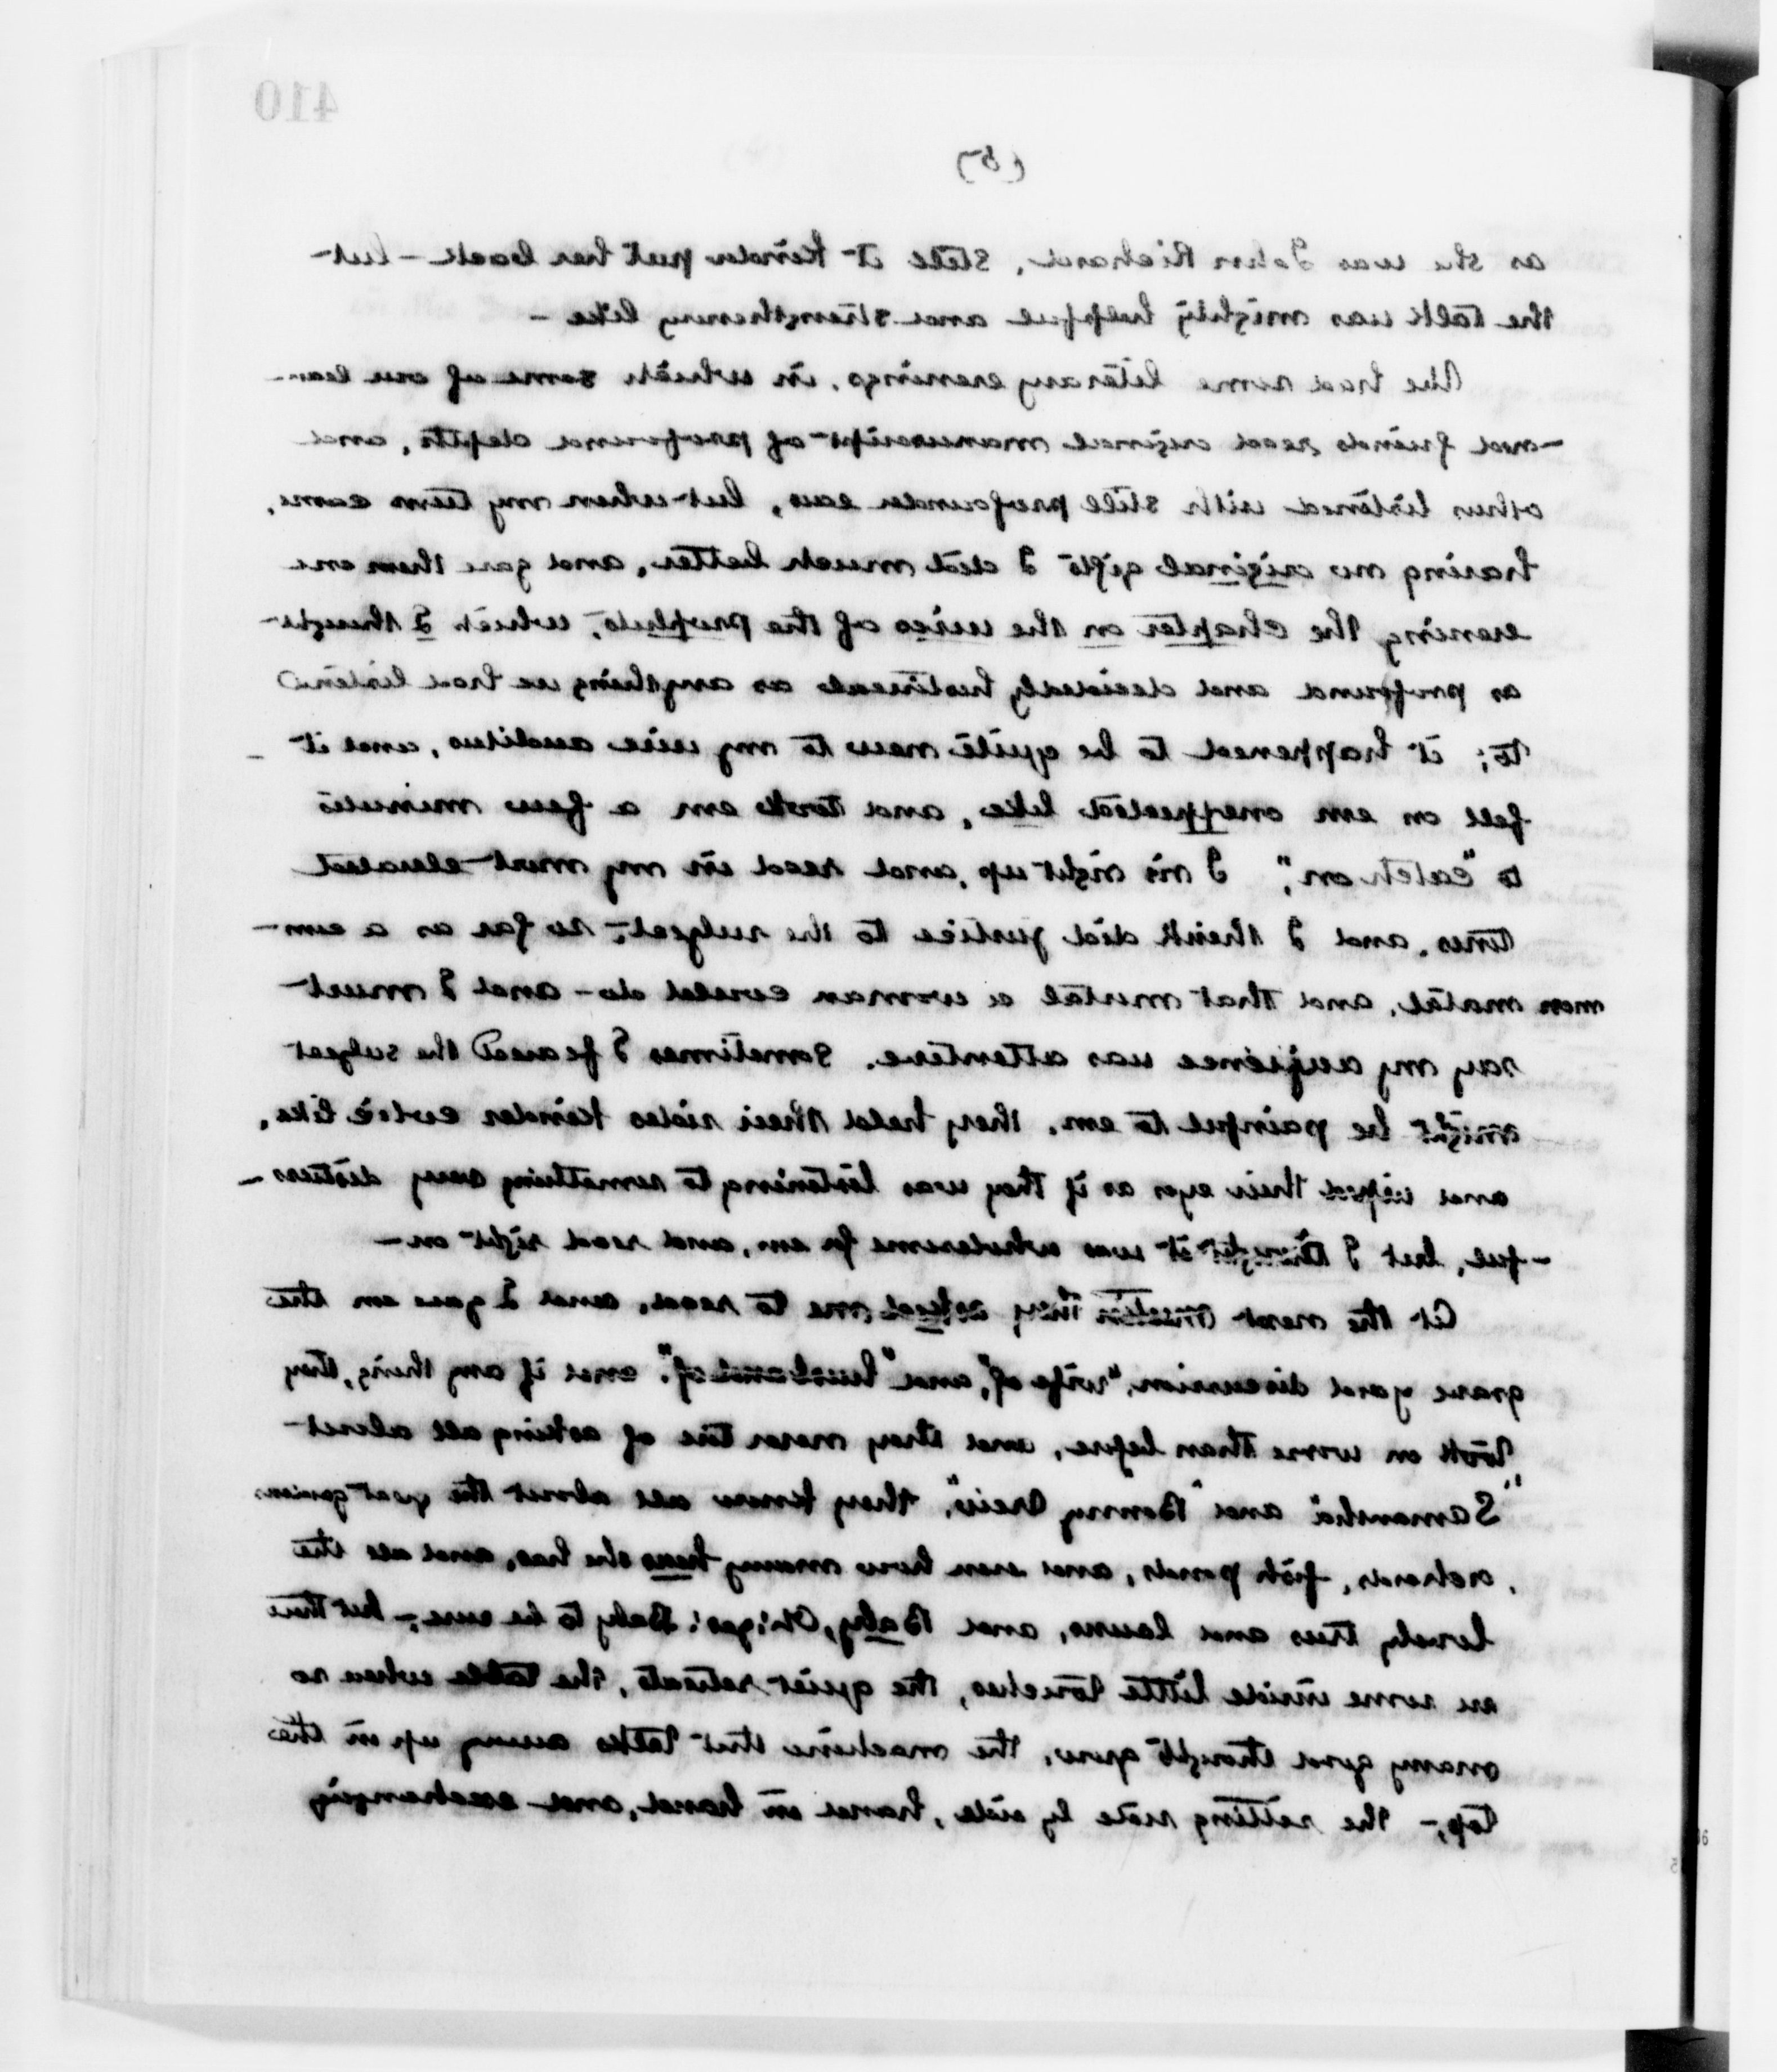 410
(5)
as she was John Richard, still it kinder put her back – but
the talk was mighty helpful and strengthening like –
We had some literary evenings, in which some of our lear-
-ned friends read original manuscript of profound depth, and
others listened with still profounder ears, but when my turn came,
having no original gifts I did much better, and gave them one
evening the chapter on the wives of the prophets, which I thought
as profound and decidedly historical as anything we had listened
to; it happened to be quite new to my wise auditors, and it
fell on em onexpected like, and took em a few minutes
to "catch on", I ris right up, and read in my most elevated
tones, and I think did justice to the subject, so far as a com-
mon mortal, and that mortal a woman could do – and I must
say my audience was attentive. Sometimes I feared the subject
might be painful to em, they held their sides kinder colic like,
and wiped their eyes as if they was listening to something very distress
-ful, but I thought it was wholesome for em, and read right on –
At the next meetin they asked me to read, and I gave em the
grave yard discussion, "wife of", and "husband of", and if any thing, they
took on worse than before, and they never tire of asking all about
"Samantha" and "Bonny Oreis", they know all about the great
orchards, fish ponds, and even how many hens she has, and all the
lovely trees and lawns, and Baby, Oh! yes! Baby to be sure; – but there
are some inside little touches, the quiet retreats, the table where so
many good thoughts grow, the machine that talks away up in the
top, – the setting side by side, hand in hand, and exchanging